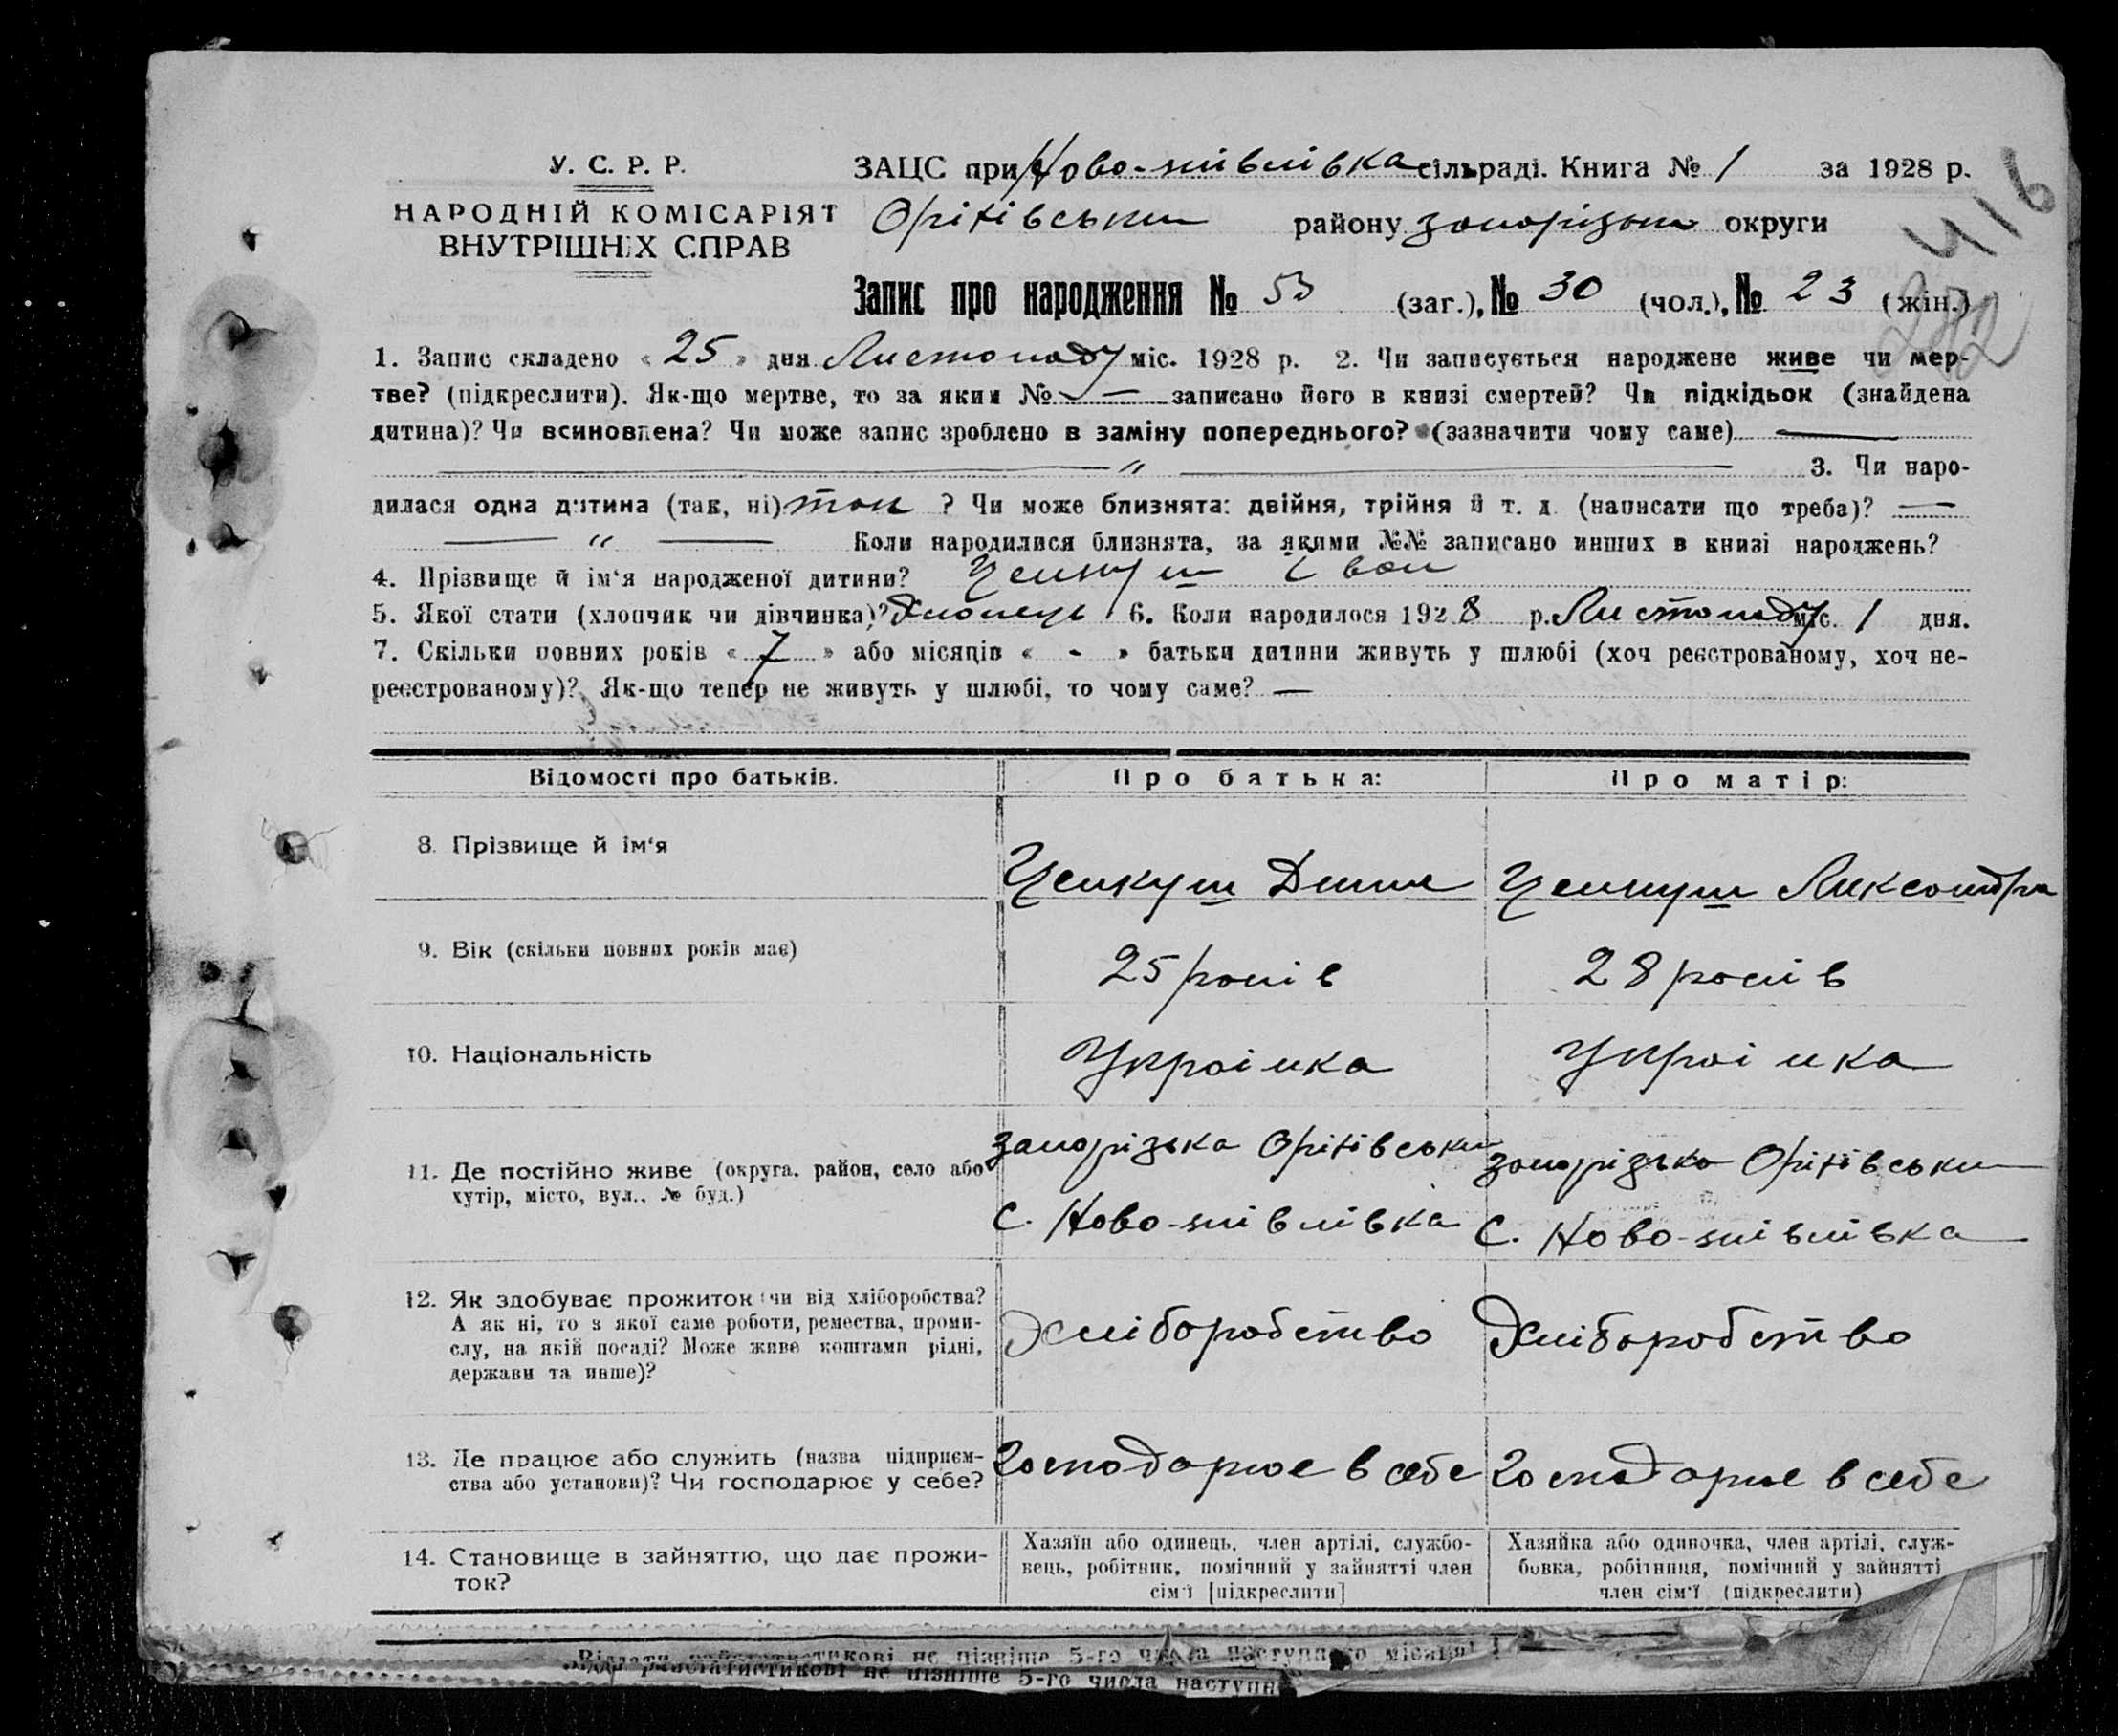 У. С. Р. Р.
НАРОДНІЙ КОМІСАРІЯТ
ВНУТРІШНІХ СПРАВ
ЗАЦС при Ново- сільраді. Книга № 1 за 1928 р.
Оріхівськи району запорізьки округи
416
Запис про народження № 53 (заг.), № 30 (чол.), № 23 (жін.)
1. Запис складено « 25 » дня Листопаду міс. 1928 р. 2. Чи записується народжене живе чи мер-
тве? (підкреслити). Як-що мертве, то за яким № — записано його в книзі смертей? Чи підкідьок (знайдена
дитина)? Чи всиновлена? Чи може запис зроблено в заміну попереднього? (зазначити чому саме) —
— „ — 3. Чи наро-
дилася одна дитина (так, ні) так ? Чи може близнята: двійня, трійня й т. д. (написати що треба)? —
— „ — Коли народилися близнята, за якими №№ записано инших в книзі народжень?
4. Прізвище й ім‘я народженої дитини? Ценкуш Іван
5. Якої стати (хлопчик чи дівчинка)? Хлопець 6. Коли народилося 1928 р. Листопаду міс. 1 дня.
7. Скільки повних років « 7 » або місяців « - » батьки дитини живуть у шлюбі (хоч реєстрованому, хоч не-
реєстрованому)? Як-що тепер не живуть у шлюбі, то чому саме? —
Відомості про батьків. Про батька: Про матір:
8. Прізвище й ім‘я
Ценкуш Ценкуш Александра
9. Вік (скільки повних років має)
25 років 28 років
10. Національність
Українка Українка
11. Де постійно живе (округа, район, село або
хутір, місто, вул., № буд.)
запорізька Оріхівськи
с. Ново-
запорізька Оріхівськи
с. Ново-
12. Як здобуває прожиток (чи від хліборобства?
А як ні, то з якої саме роботи, ремества, проми-
слу, на якій посаді? Може живе коштами рідні,
держави та инше)?
Хліборобство Хліборобство
13. Де працює або служить (назва підприєм-
ства або установи)? Чи господарює у себе?
Господарює в себе Господарює в себе
14. Становище в зайняттю, що дає прожи-
ток?
Хазяїн або одинець, член артілі, службо-
вець, робітник, помічний у зайнятті член
сім‘ї [підкреслити]
Хазяйка або одиночка, член артілі, служ-
бовка, робітниця, помічний у зайнятті
член сім‘ї (підкреслити)
не пізніше 5-го числа наступного місяця!
не пізніше 5-го числа наступн